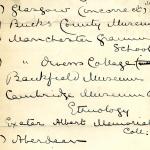 Glasgow (incorrect)
Bucks County Museum
Manchester Grammar
School
" Owens College
Bankfield Museum
Cambridge Museum
Etnology
Exeter Albert Memorial
Coll:
Aberdeen